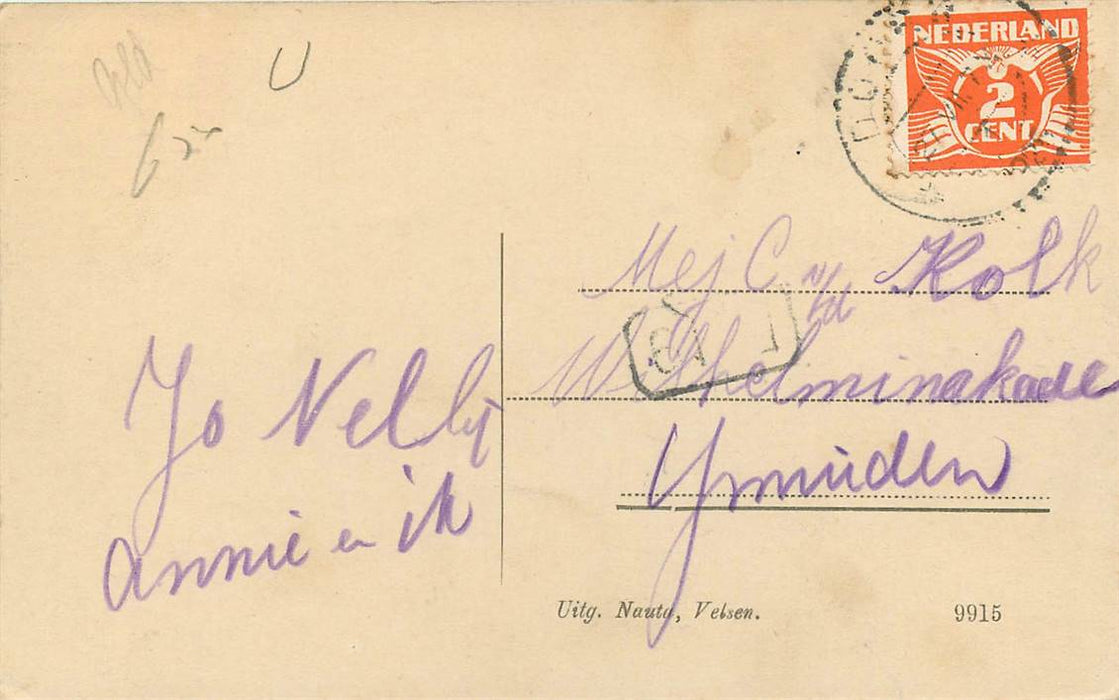 NEDERLAND
2
CENT
Mej C v/d Kolk
Wilhelminakade
Ymuiden
Jo Nelly
Annie en ik
Uitg. Nauta, Velsen.
9915